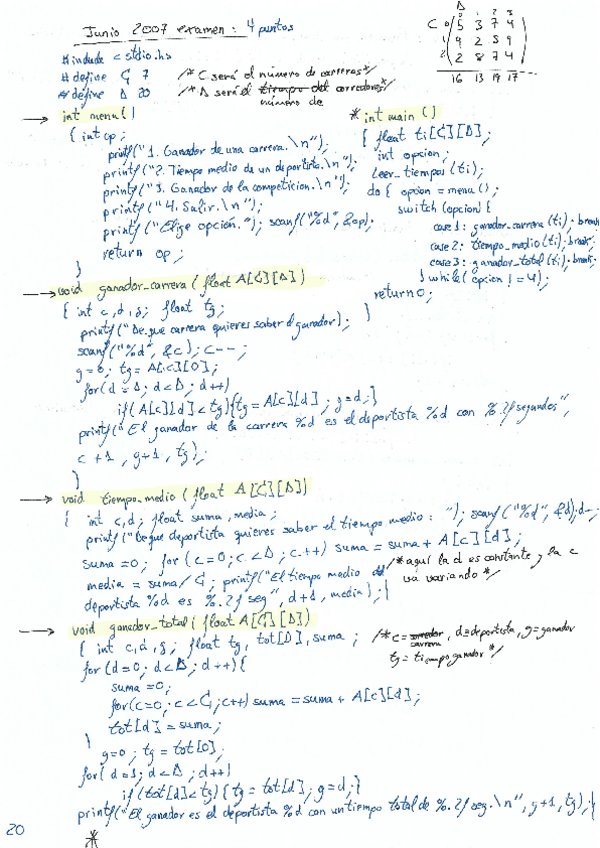 Junio 2007 examen: 4 puntos
#include <stdio.h>
#define C 7 /*C será el número de carreras*/
#define D 20 /*D será el tiempo del corredores*/
número de
D
0 1 2 3
C 0 5 3 7 4
1 9 2 5 9
2 2 8 7 4
16 13 19 17
int menu()
{ int op;
printf("1. Ganador de una carrera.\n");
printf("2. Tiempo medio de un deportista.\n");
printf("3. Ganador de la competicion.\n");
printf("4. Salir.\n");
printf("Elige opción."); scanf("%d", &op);
return op;
}
* int main ()
{ float ti[C][D];
int opcion;
leer_tiempos(ti);
do { opcion = menu();
switch (opcion) {
case 1: ganador_carrera(ti); break;
case 2: tiempo_medio(ti); break;
case 3: ganador_total(ti); break;
} while (opcion != 4);
return 0;
}
void ganador_carrera (float A[C][D])
{ int c,d,g; float tg;
printf("De que carrera quieres saber el ganador);
scanf("%d", &c); c--;
g=0; tg = A[c][0];
for(d = D; d<D; d++)
if (A[c][d]<tg){tg=A[c][d]; g=d;}
printf("El ganador de la carrera %d es el deportista %d con %.2f segundos",
c+1, g+1, tg);
}
void tiempo_medio (float A[C][D])
{ int c,d; float suma, media;
printf("De que deportista quieres saber el tiempo medio: "); scanf("%d", &d); d--;
suma=0; for (c=0; c<D; c++) suma = suma + A[c][d];
media = suma/C; printf("El tiempo medio del /*aquí la d es constante y la c
deportista %d es %.2f seg", d+1, media);} va variando*/
void ganador_total (float A[C][D])
{ int c,d,g; float tg, tot[D], suma; /*c=corredor, d=deportista, g=ganador
carrera
tg = tiempo ganador*/
for (d=0; d<D; d++){
suma=0;
for(c=0; c<C; c++) suma = suma + A[c][d];
tot[d] = suma;
}
g=0; tg = tot[0];
for(d=1; d<D; d++)
if (tot[d]<tg) {tg = tot[d]; g=d;}
printf("El ganador es el deportista %d con un tiempo total de %.2f seg.\n", g+1, tg);}
20 *